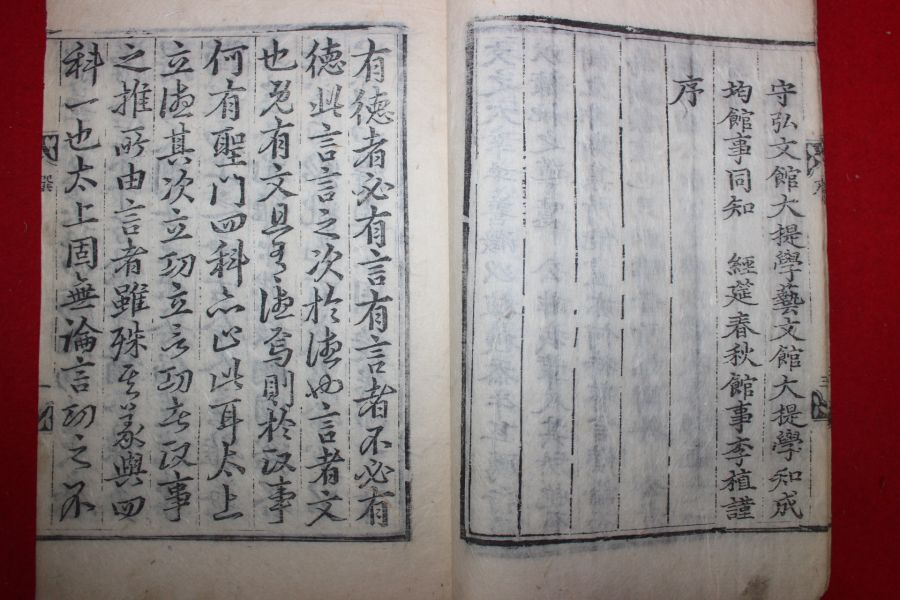 守弘文館大提學藝文館大提學知成
均館事同知　經筵春秋館事李植謹
序
有德者必有言有言者不必有
德此言言之次於德也言者文
也兄有文且有德焉則於政事
何有聖門四科亦止此耳太上
立德其次立功立言功者政事
之推所由言者雖殊其義與四
科一也太上固無論言功之不